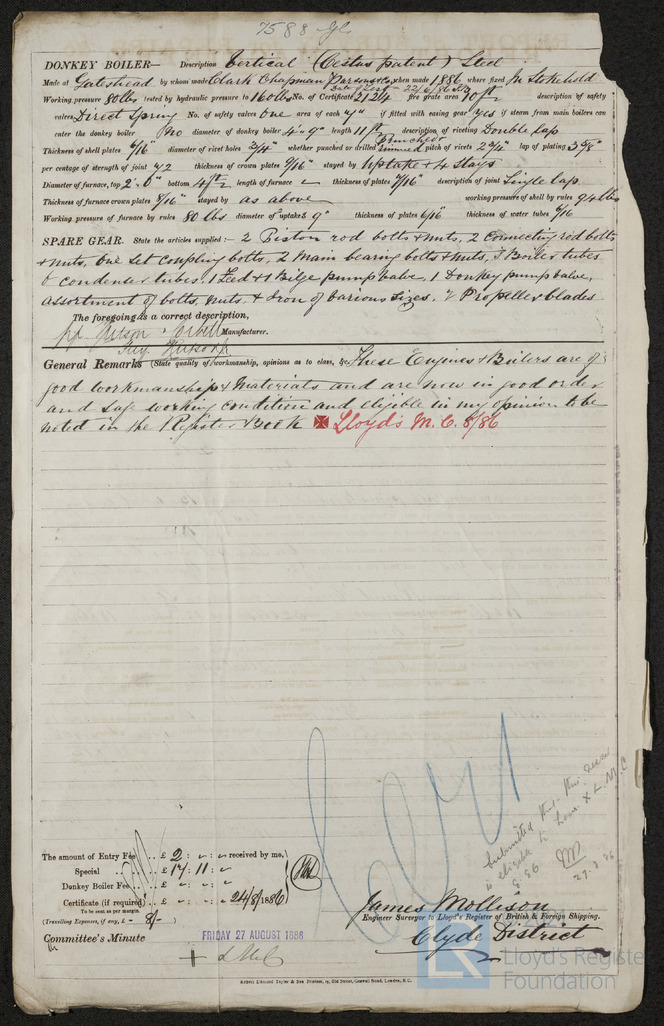 7588 Gl
DONKEY BOILER— Description Vertical (Cestus patent) Steel
Made at Gateshead by whom made Clark Chapman Parsons & Co when made 1886 where fixed In Stokehold
Working pressure 80 lbs tested by hydraulic pressure to 160 lbs No. of Certificate 2124 fire grate area 10 ft description of safety
valves Direct Spring No. of safety valves One area of each 7" if fitted with easing gear yes if steam from main boilers can
enter the donkey boiler No diameter of donkey boiler 4'.9" length 11 ft description of riveting Double lap
Thickness of shell plates 6/16" diameter of rivet holes 3/4" whether punched or drilled punched pitch of rivets 2 3/4" lap of plating 3 5/8"
per centage of strength of joint 72 thickness of crown plates 9/16" stayed by Uptake + 4 stays
Diameter of furnace, top 2'.0" bottom 4 ft length of furnace thickness of plates 7/16" description of joint Single lap
Thickness of furnace crown plates 8/16" stayed by as above working pressure of shell by rules 94 lbs
Working pressure of furnace by rules 80 lbs diameter of uptake 9" thickness of plates 6/16 thickness of water tubes 6/16
SPARE GEAR. State the articles supplied:— 2 Piston rod bolts & nuts, 2 Connecting rod bolts
& nuts, One set coupling bolts, 2 Main bearing bolts & nuts, 3 Boiler tubes
6 condenser tubes, 1 Feed & 1 Bilge pump valve, 1 Donkey pump valve,
assortment of bolts, nuts, & Iron of various sizes, 2 Propeller blades
The foregoing is a correct description,
Manufacturer.
General Remarks (State quality of workmanship, opinions as to class, &c. These Engines & Boilers are of
good workmanship & Materials and are now in good order
and safe working condition and eligible in my opinion to be
noted in the Register Book Lloyd's M.C. 8/86
Submitted that this
is eligible to have L.M.C
8.86
27.8.86
The amount of Entry Fee .. £ 2 : - : - received by me,
Special .. £ 17 : 11 : -
Donkey Boiler Fee .. £ - : - : -
Certificate (if required) .. £ - : - : - 24/8/1886
To be sent as per margin.
(Travelling Expenses, if any, £ - 8/- )
James Mollison
Engineer Surveyor to Lloyd's Register of British & Foreign Shipping.
Clyde District
Committee's Minute
FRIDAY 27 AUGUST 1886
+ LMC
Lloyd's Register
Foundation